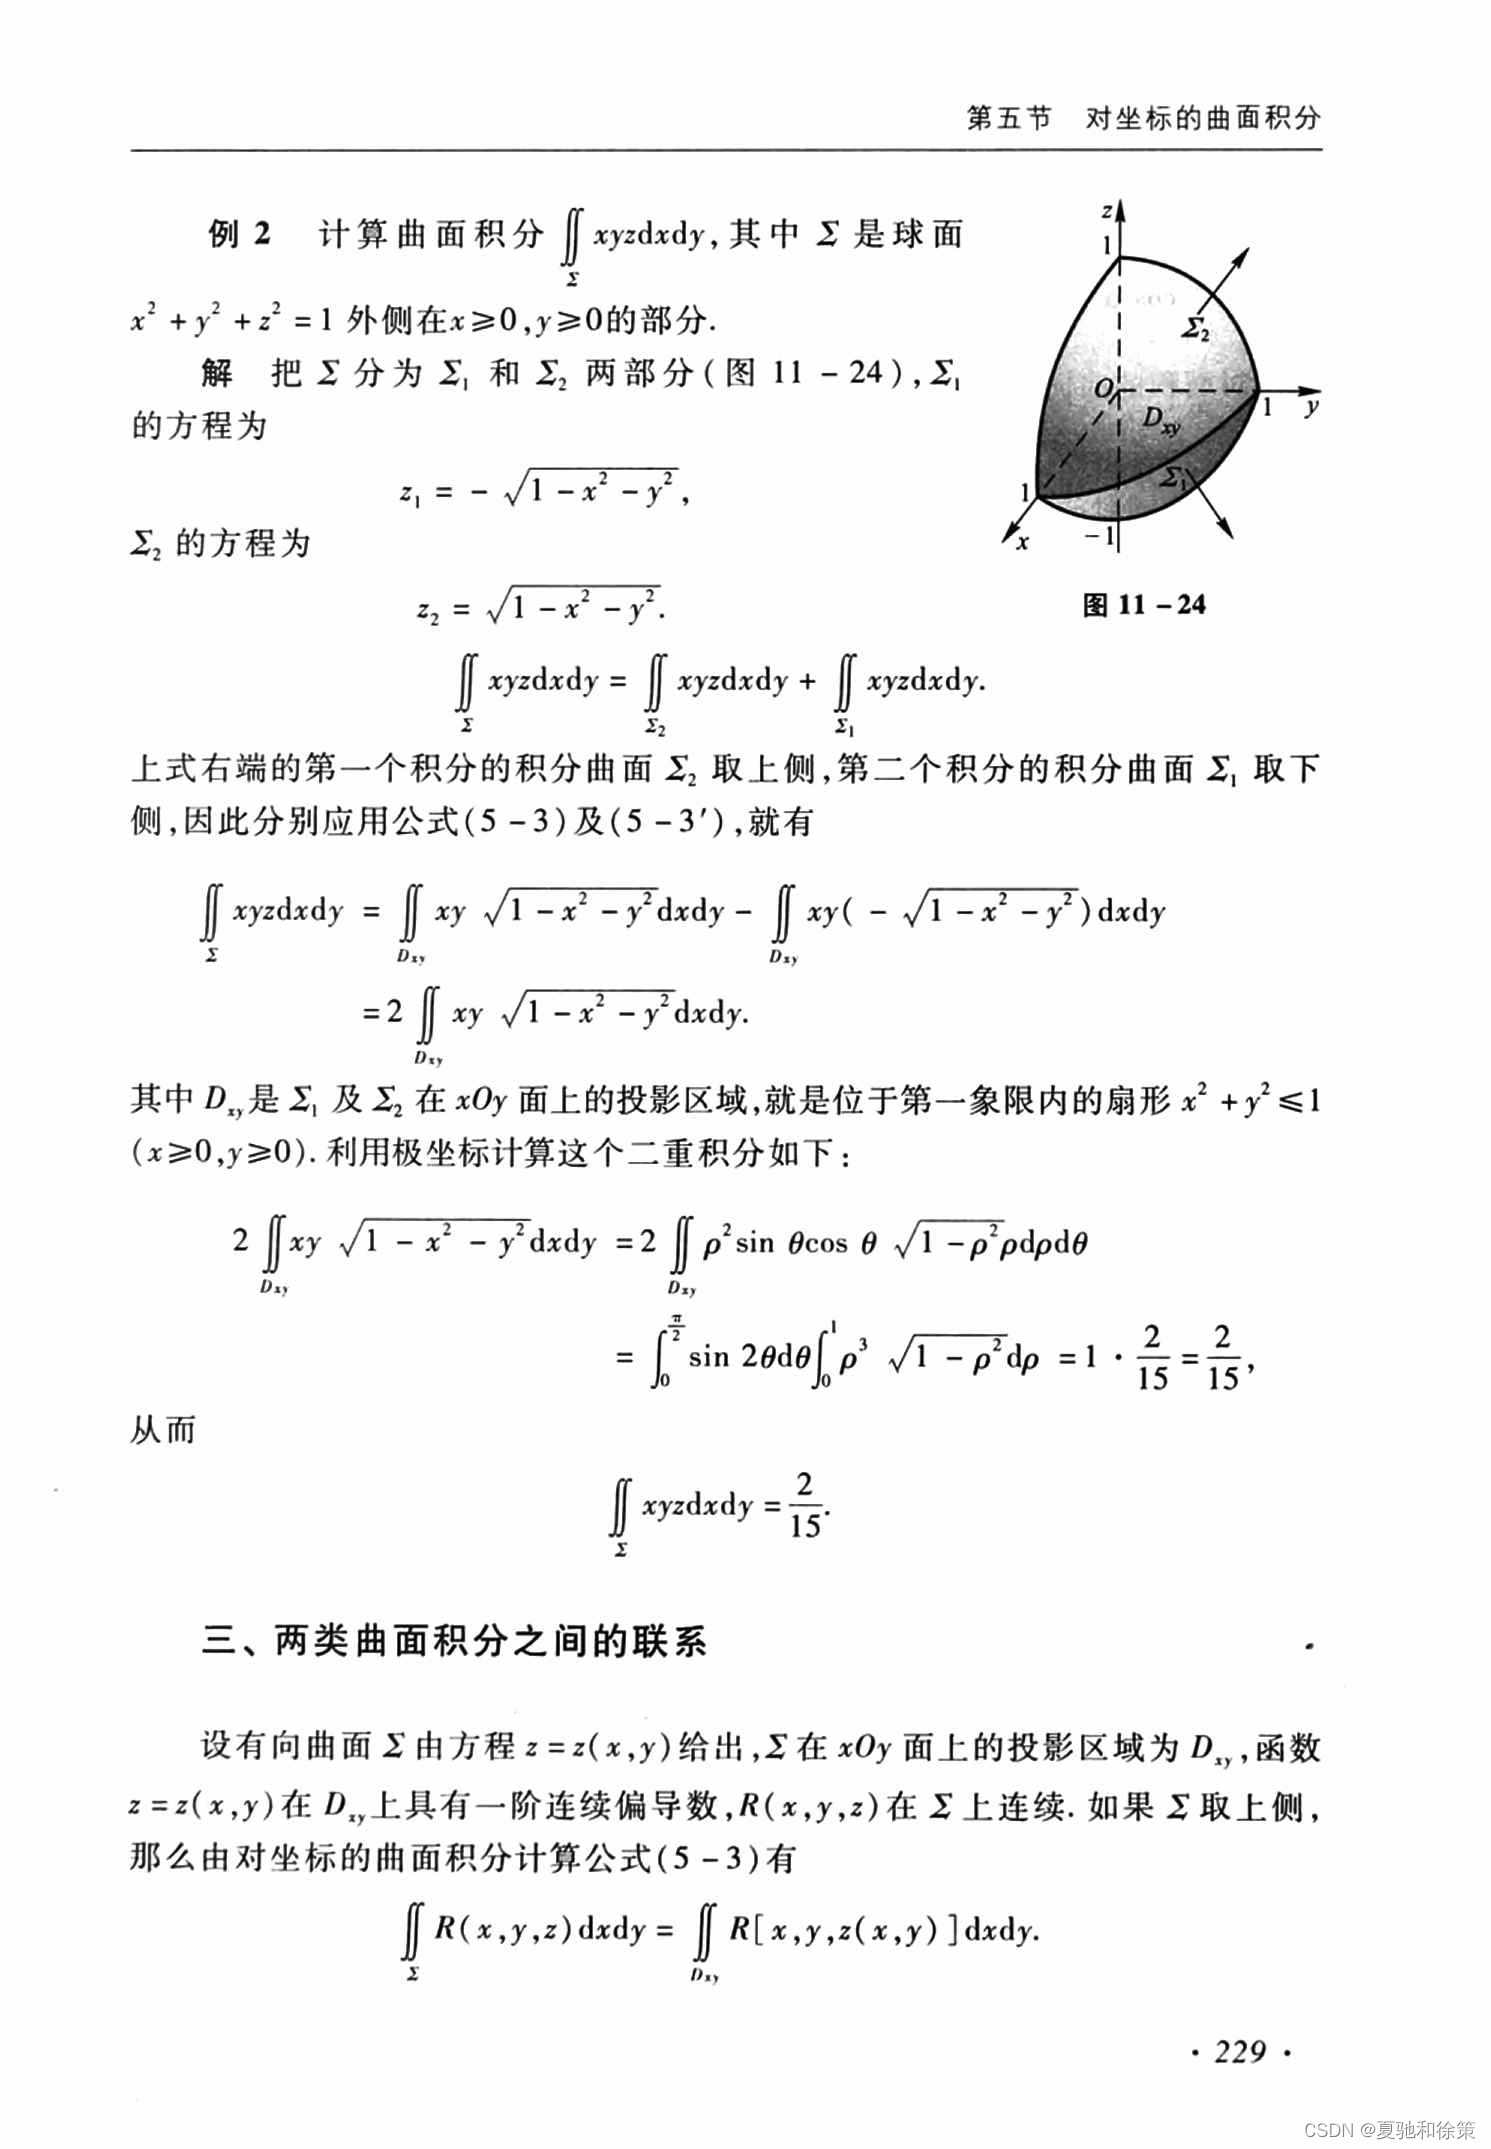 第五节 对坐标的曲面积分
例 2 计算曲面积分 ∬_Σ xyzdxdy,其中 Σ 是球面
x² + y² + z² = 1 外侧在x≥0,y≥0的部分.
解 把 Σ 分为 Σ₁ 和 Σ₂ 两部分(图 11 - 24),Σ₁
的方程为
z₁ = - √(1 - x² - y²),
Σ₂ 的方程为
z₂ = √(1 - x² - y²).
z
1
Σ₂
O
D_xy
1 y
Σ₁
1
x
-1
图 11 - 24
∬_Σ xyzdxdy = ∬_Σ₂ xyzdxdy + ∬_Σ₁ xyzdxdy.
上式右端的第一个积分的积分曲面 Σ₂ 取上侧,第二个积分的积分曲面 Σ₁ 取下
侧,因此分别应用公式(5 - 3)及(5 - 3′),就有
∬_Σ xyzdxdy = ∬_D_xy xy √(1 - x² - y²)dxdy - ∬_D_xy xy( - √(1 - x² - y²))dxdy
= 2 ∬_D_xy xy √(1 - x² - y²)dxdy.
其中 D_xy是 Σ₁ 及 Σ₂ 在 xOy 面上的投影区域,就是位于第一象限内的扇形 x² + y² ≤ 1
(x≥0,y≥0). 利用极坐标计算这个二重积分如下:
2 ∬_D_xy xy √(1 - x² - y²)dxdy = 2 ∬_D_xy ρ² sin θcos θ √(1 - ρ²)ρdρdθ
= ∫₀^(π/2) sin 2θdθ∫₀¹ ρ³ √(1 - ρ²)dρ = 1 · 2/15 = 2/15,
从而
∬_Σ xyzdxdy = 2/15.
三、两类曲面积分之间的联系
设有向曲面 Σ 由方程 z = z(x,y)给出,Σ 在 xOy 面上的投影区域为 D_xy,函数
z = z(x,y)在 D_xy上具有一阶连续偏导数,R(x,y,z)在 Σ 上连续. 如果 Σ 取上侧,
那么由对坐标的曲面积分计算公式(5 - 3)有
∬_Σ R(x,y,z)dxdy = ∬_D_xy R[x,y,z(x,y)]dxdy.
· 229 ·
CSDN @夏驰和徐策